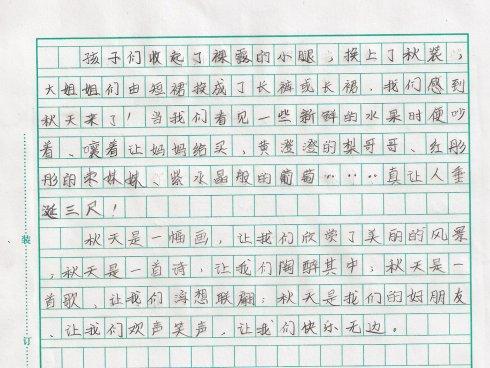 孩子们收起了裸露的小腿，换上了秋装，
大姐姐们由短裙换成了长裤或长裙。我们感到
秋天来了！当我们看见一些新鲜的水果时便吵
着、嚷着让妈妈给买，黄澄澄的梨哥哥、红彤
彤的枣妹妹、紫水晶般的葡萄……真让人垂
涎三尺！
秋天是一幅画，让我们欣赏了美丽的风景
，秋天是一首诗，让我们陶醉其中；秋天是一
首歌、让我们浮想联翩；秋天是我们的好朋友
、让我们欢声笑声，让我们快乐无边。
装
订